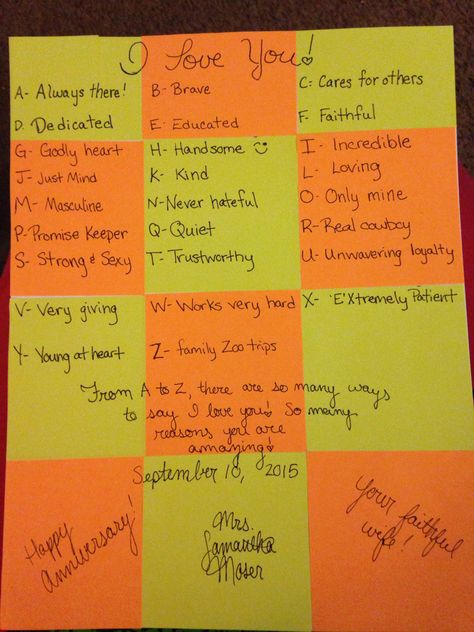 I Love You!
A- Always there!
B- Brave
C: Cares for others
D: Dedicated
E: Educated
F: Faithful
G- Godly heart
H- Handsome
I- Incredible
J- Just Mind
K- Kind
L- Loving
M- Masculine
N- Never hateful
O- Only mine
P- Promise Keeper
Q- Quiet
R- Real cowboy
S- Strong & Sexy
T- Trustworthy
U- Unwavering loyalty
V- Very giving
W- Works very hard
X- 'E'Xtremely Patient
Y- Young at heart
Z- family Zoo trips
From A to Z, there are so many ways
to say I love you! So many
reasons you are
amazing!
September 10, 2015
Happy
Anniversary!
Mrs.
Samantha
Moser
Your faithful
wife!